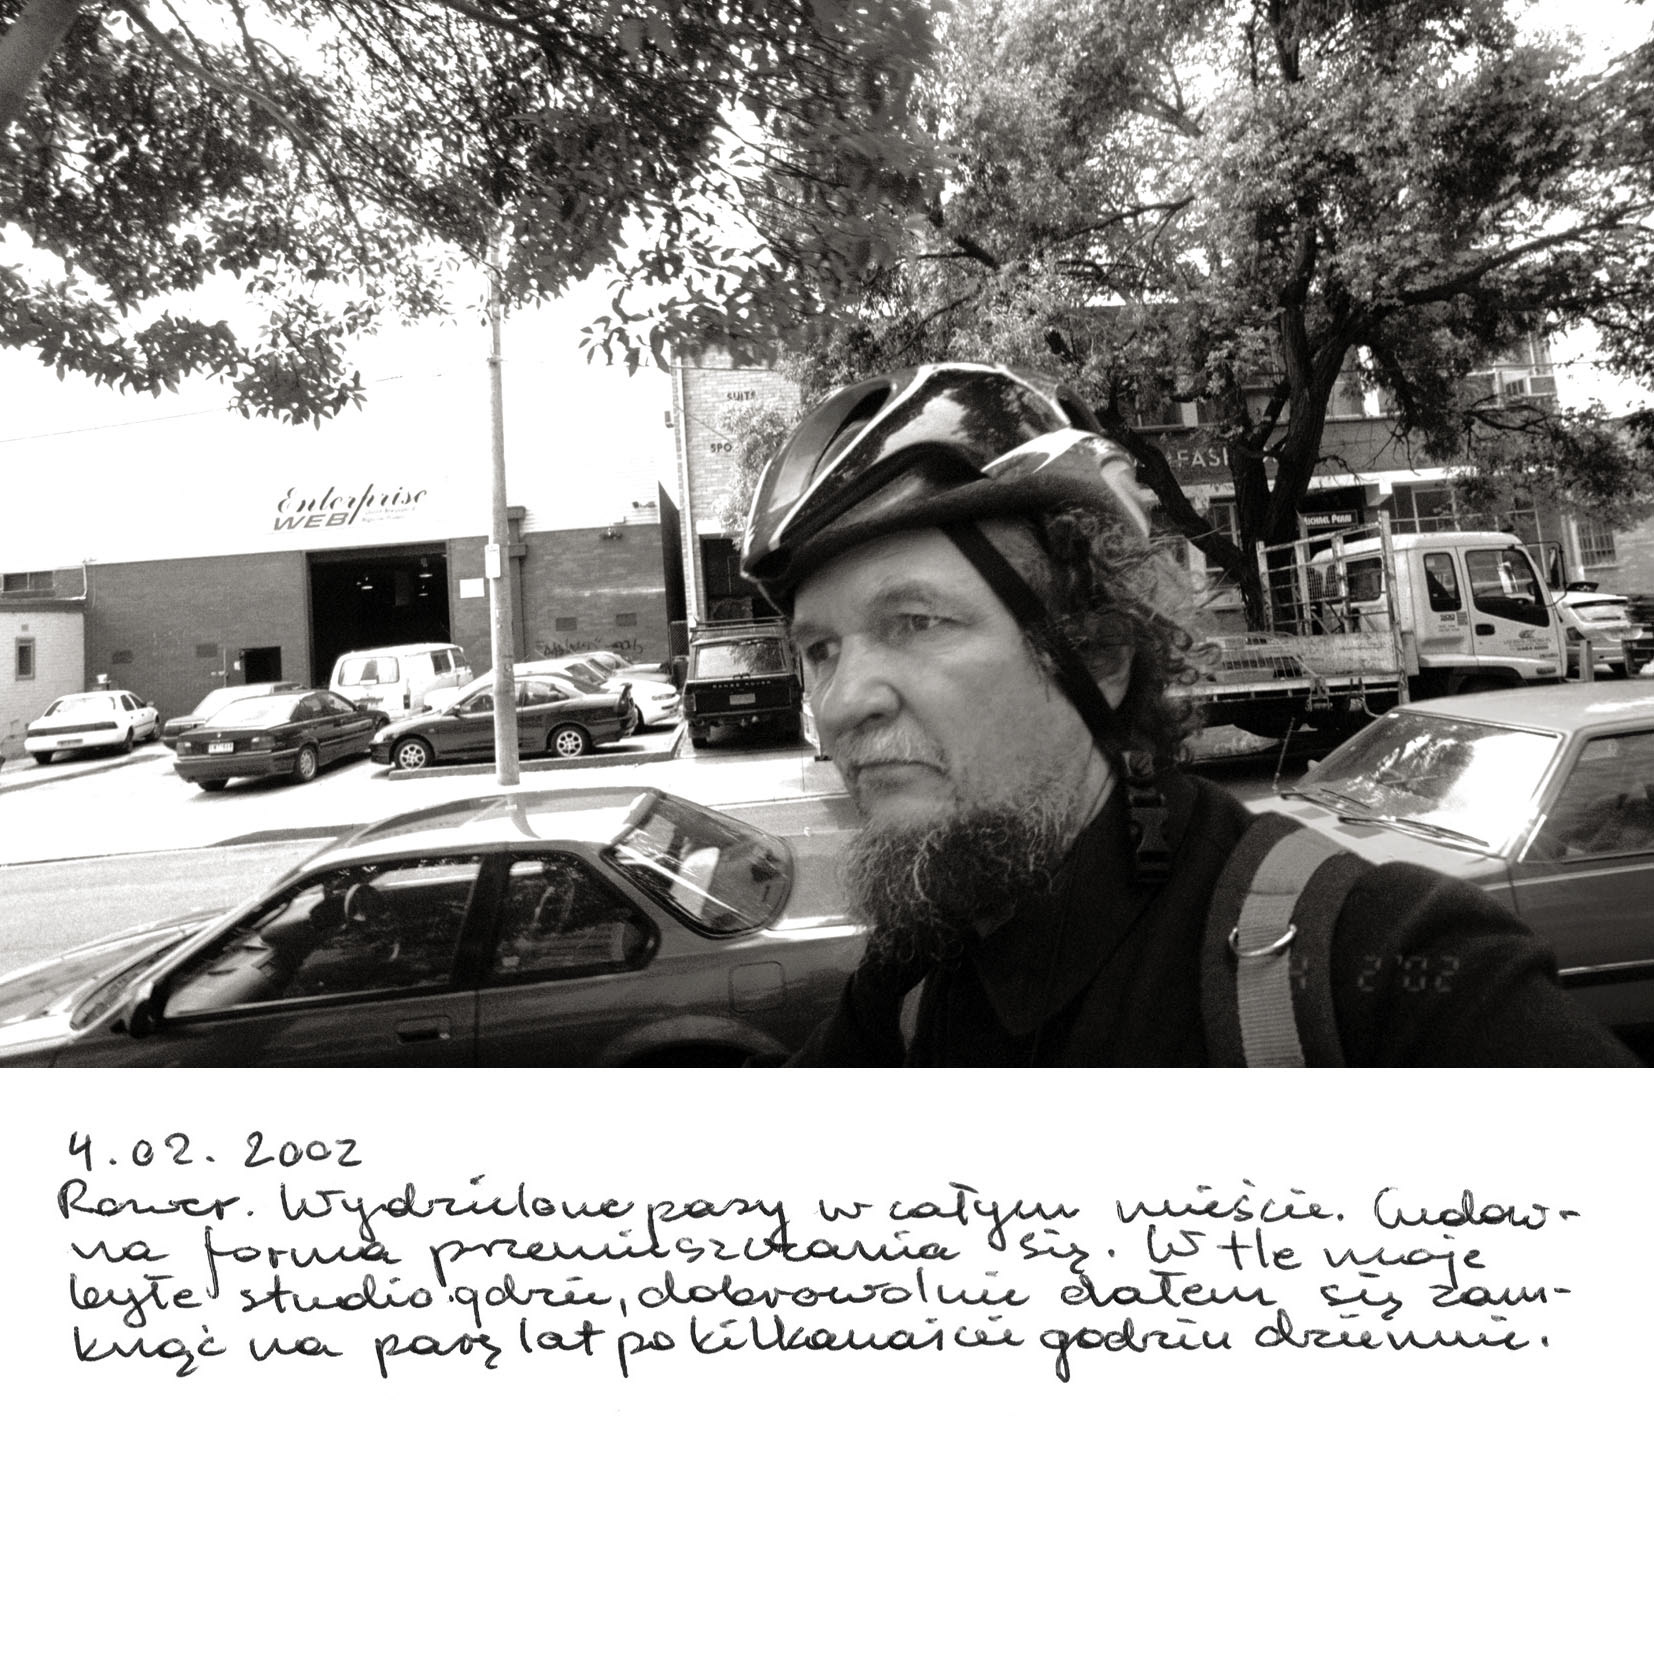 SUITE
SPO
Enterprise
WEB
FASH
MICHAEL PERRI
RANGE ROVER
4 2'02
4.02.2002
Rower. Wydzielone pasy w całym mieście. Cudow-
na forma przemieszczania się. W tle moje
byłe studio gdzie, dobrowolnie dałem się zam-
knąć na parę lat po kilkanaście godzin dziennie.